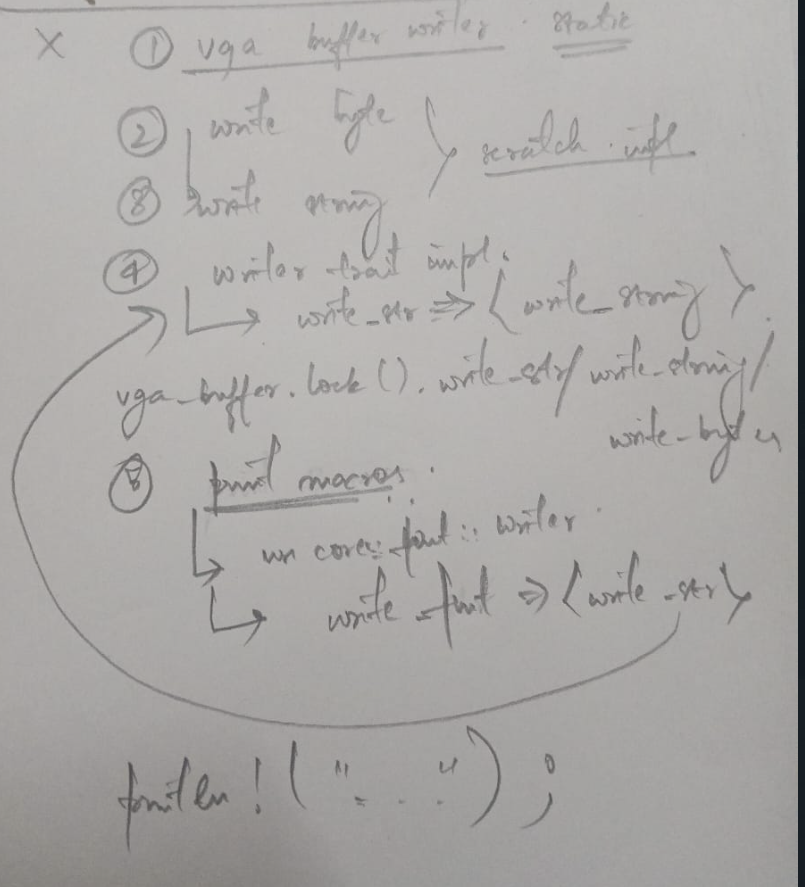 X ① vga buffer writer. static
② write byte
scratch. impl
③ write string
④ writer trait impl.
↳ write_str => < write_string >.
vga_buffer.lock().write_str/ write_string/
write_bytes
⑤ print macros.
↳ core::fmt:: writer.
↳ write_fmt => < write_str >
println!("...");